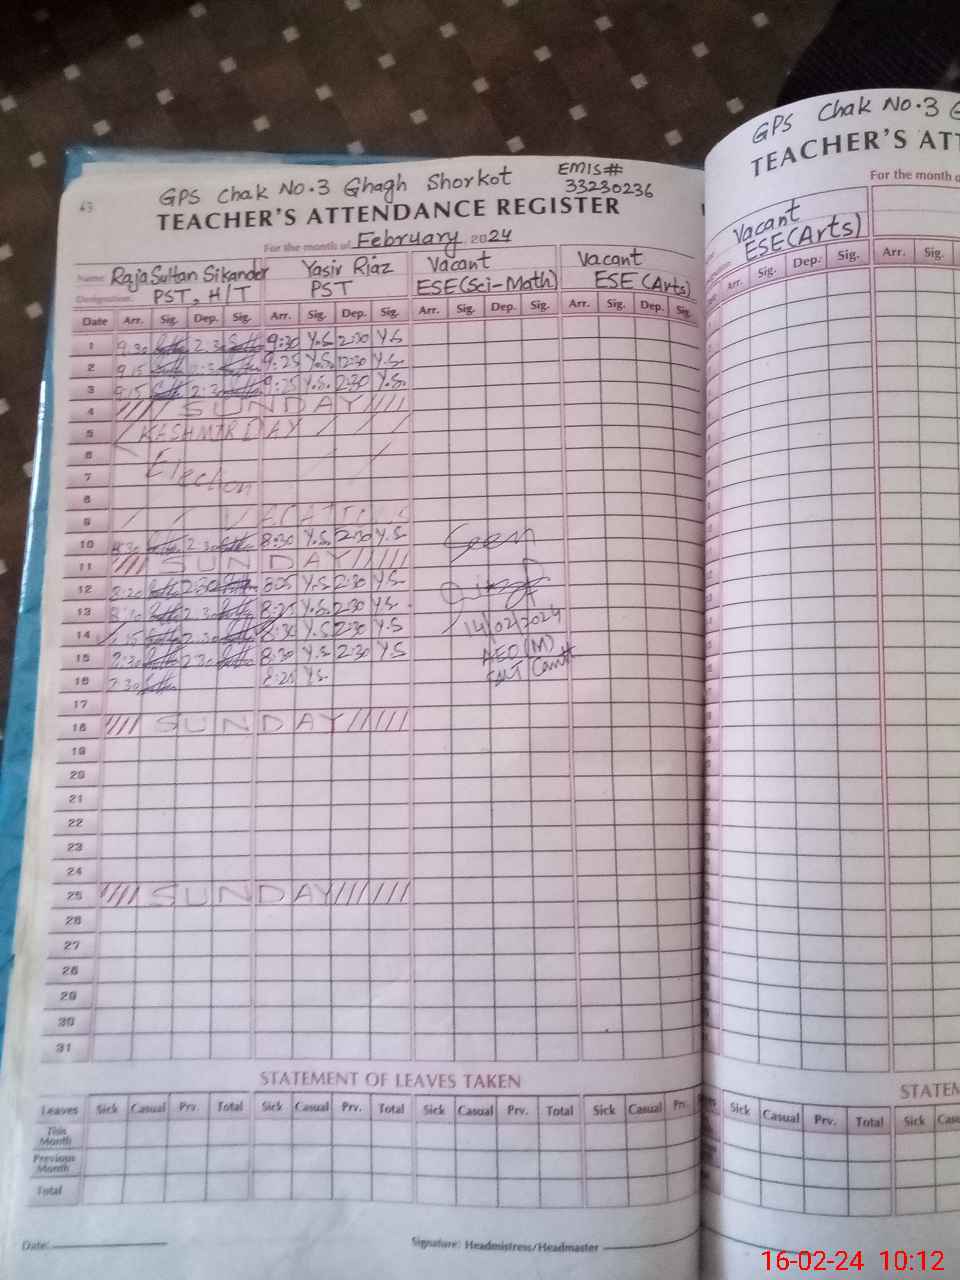 GPS Chak No.3 Ghagh Shorkot
EMIS#
33230236
43
TEACHER'S ATTENDANCE REGISTER
For the month of February 2024
Name: Raja Sultan Sikander Yasir Riaz Vacant Vacant
Designation: PST, H/T PST ESE(Sci-Math) ESE (Arts)
Date Arr. Sig. Dep. Sig. Arr. Sig. Dep. Sig. Arr. Sig. Dep. Sig. Arr. Sig. Dep. Sig.
1 9:30 2:3 9:30 Y.S 2:30 Y.S
2 9:15 9:25 Y.S 12:30 Y.S.
3 9:15 2:3 9:25 Y.S. 2:30 Y.S.
4 //// SUNDAY ////
5 KASHMIR DAY
6
7 Election
8
9
10 8:30 2:30 8:30 Y.S. 2:30 Y.S.
11 //// SUNDAY /////
12 8:20 2:30 8:25 Y.S 2:30 Y.S
13 2:30 8:25 Y.S. 2:30 Y.S.
14 2:30 8:30 Y.S 2:30 Y.S
15 7:30 2:30 8:30 Y.S 2:30 Y.S
16 7:30 8:20 Y.S.
17
18 //// SUNDAY //////
19
20
21
22
23
24
25 //// SUNDAY //////
26
27
28
29
30
31
Seen
14/02/2024
AEO (M)
Cantt
STATEMENT OF LEAVES TAKEN
Leaves Sick Casual Prv. Total Sick Casual Prv. Total Sick Casual Prv. Total Sick Casual Prv.
This Month
Previous Month
Total
Date:
Signature: Headmistress/Headmaster
GPS Chak No.3 G
TEACHER'S ATT
For the month o
Vacant
ESE(Arts)
Arr. Sig. Dep. Sig. Arr. Sig.
STATEM
Sick Casual Prv. Total Sick Cas
16-02-24 10:12